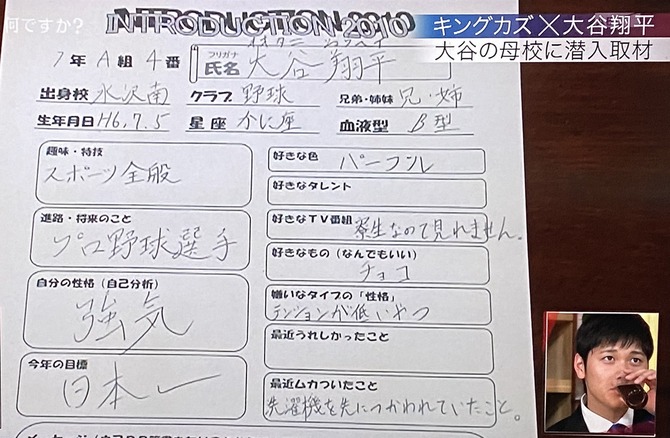 何ですか?
INTRODUCTION 2010
キングカズ×大谷翔平
大谷の母校に潜入取材
1年 A組 4番
フリガナ オオタニ ショウヘイ
氏名 大谷 翔平
出身校 水沢南 クラブ 野球 兄弟・姉妹 兄・姉
生年月日 H6.7.5 星座 かに座 血液型 B型
趣味・特技
スポーツ全般
進路・将来のこと
プロ野球選手
自分の性格(自己分析)
強気
今年の目標
日本一
好きな色 パープル
好きなタレント
好きなTV番組 寮生なので見れません。
好きなもの(なんでもいい)
チョコ
嫌いなタイプの「性格」
テンションが低いやつ
最近うれしかったこと
最近ムカついたこと
洗濯機を先につかわれていたこと。